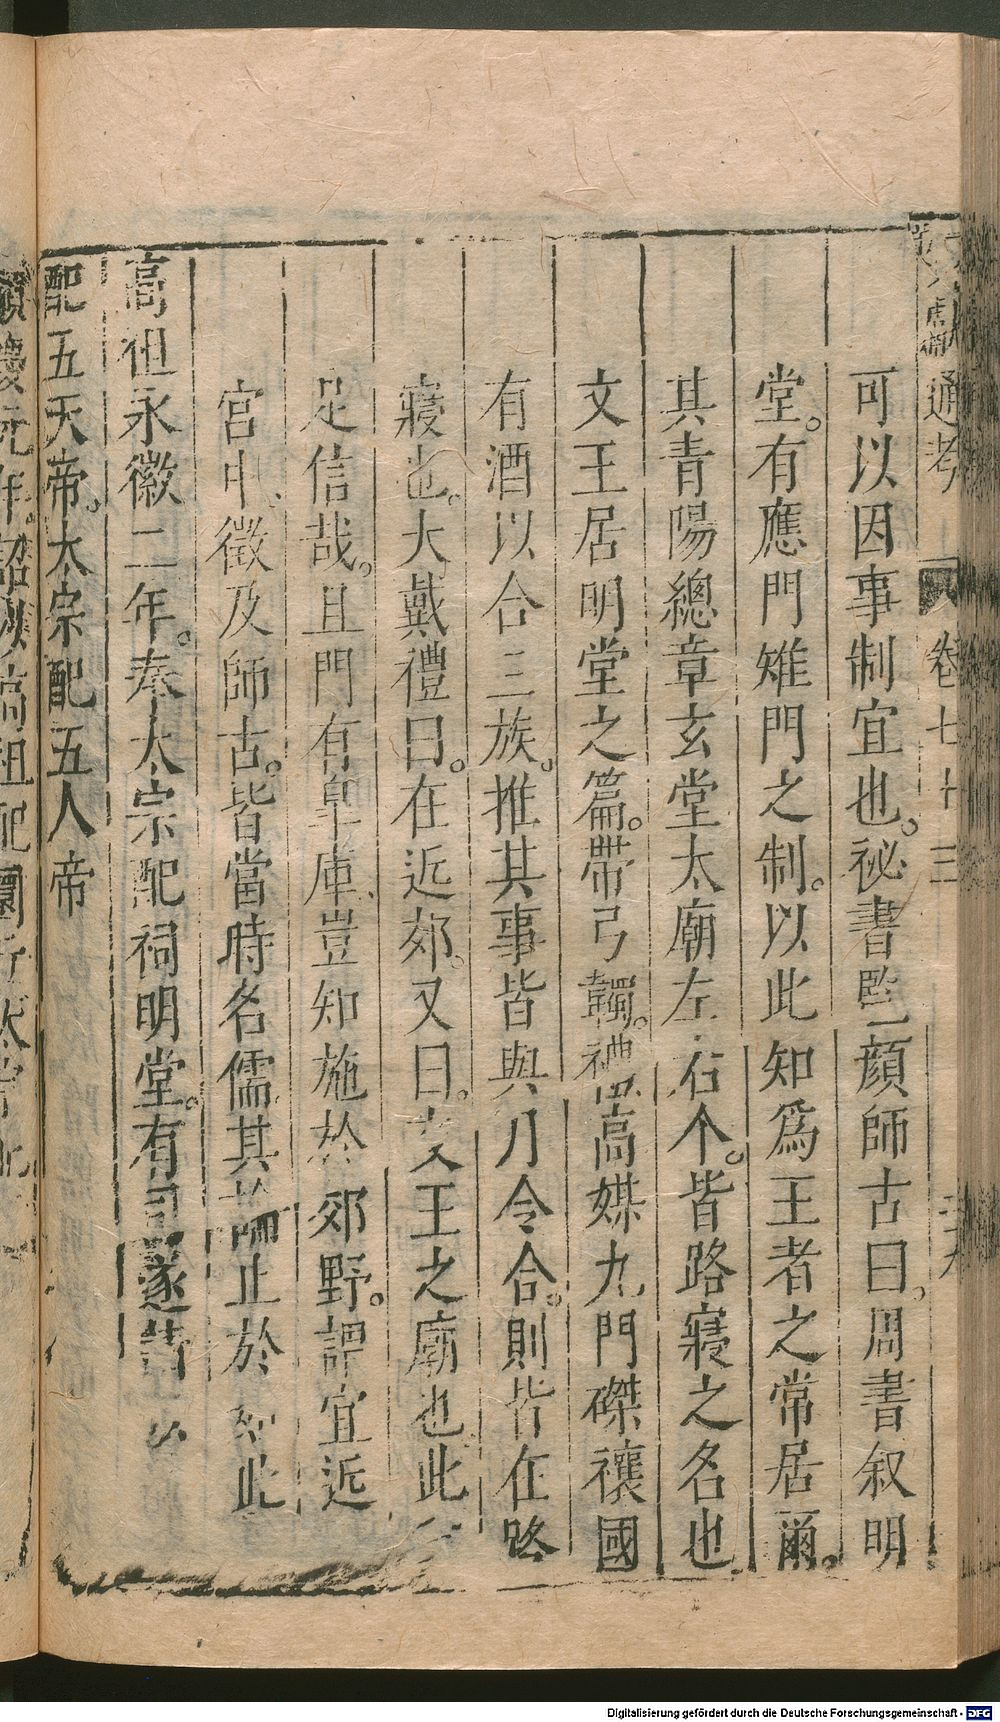 通考 卷七十三
可以因事制宜也。祕書監顔師古曰。周書叙明
堂。有應門雉門之制。以此知爲王者之常居爾。
其青陽總章玄堂太廟左右个。皆路寢之名也。
文王居明堂之篇。帶弓韣。禮高媒九門磔禳國
有酒以合三族。推其事皆與月令合。則皆在路
寢也。大戴禮曰。在近郊。又曰。文王之廟也此
足信哉。且門有臯庫、豈知施於郊野。謂宜近
宮中、徵及師古。皆當時名儒其論止於如此
高祖永徽二年。奉太宗配祠明堂。有司遂
配五天帝。太宗配五人帝
顯慶元年。詔以高祖配圜丘太宗
Digitalisierung gefördert durch die Deutsche Forschungsgemeinschaft - DFG